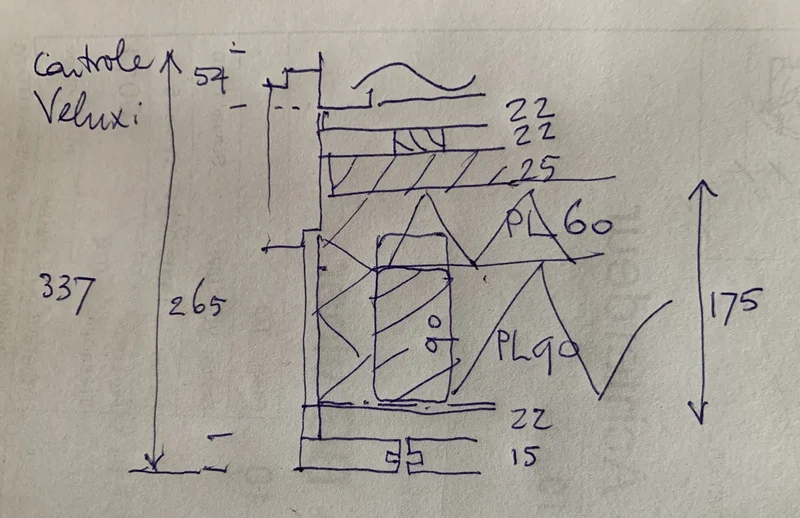 Controle
Veluxi
54
22
22
25
PL 60
337
265
175
90
PL90
22
15